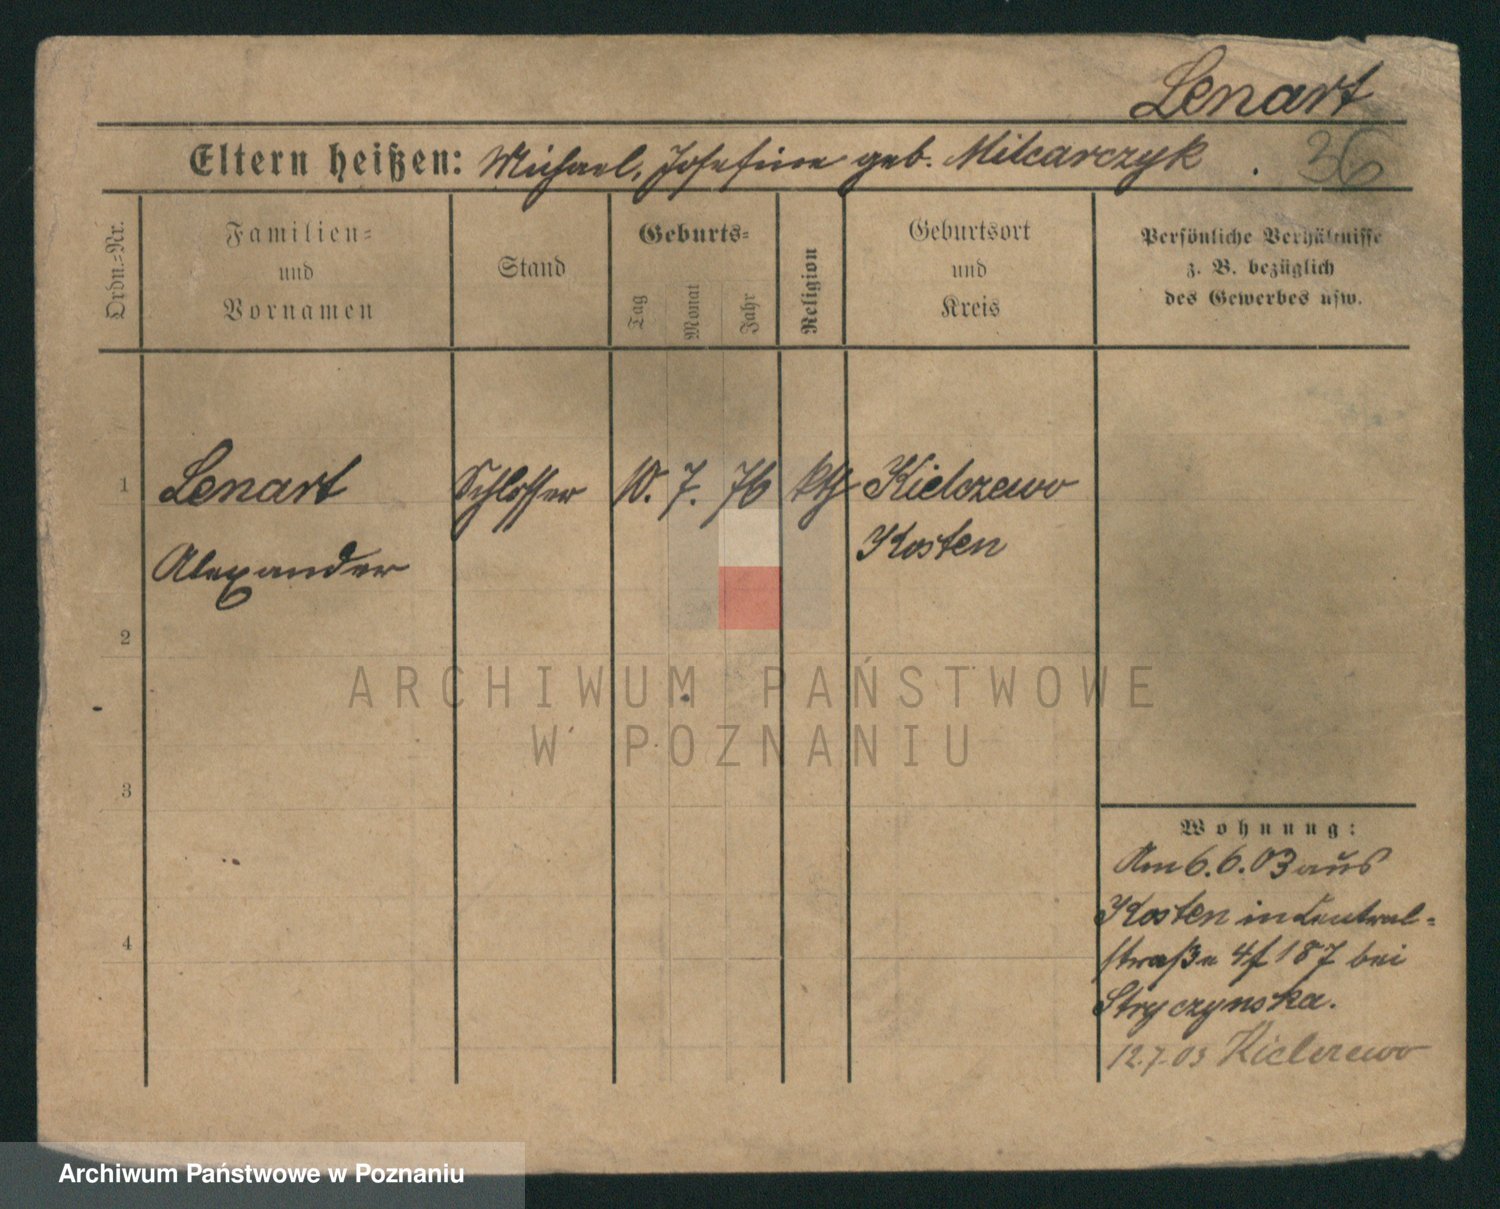 Lenart
36
Eltern heißen: Michael, Josefine geb. Milcarczyk.
Ordn.-Nr.
Familien-
und
Vornamen
Stand
Geburts-
Tag
Monat
Jahr
Religion
Geburtsort
und
Kreis
Persönliche Verhältnisse
z. B. bezüglich
des Gewerbes usw.
1 Lenart Schlosser 10. 7. 76 kth Kielczewo
Alexander Kosten
2
ARCHIWUM PAŃSTWOWE
W POZNANIU
3
Wohnung:
Am 6.6.03 aus
Kosten in Central-
4
straße 4f 187 bei
Stryczynska.
12.7.03 Kielczewo
Archiwum Państwowe w Poznaniu